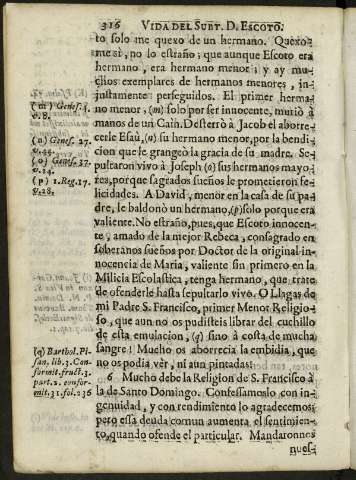 316 VIDA DEL SUBT. D. ESCOTO.
to solo me quexo de un hermano. Quexo-
me sì, no lo estraño; que aunque Escoto era
hermano, era hermano menor; y ay mu-
chos exemplares de hermanos menores, in-
justamente perseguidos. El primer herma-
no menor, (m) solo por ser innocente, muriò à
manos de un Caìn. Desterrò à Jacob el aborre-
cerle Esaù, (n) su hermano menor, por la bendi-
cion que le grangeò la gracia de su madre. Se-
pultaron vivo à Joseph (o) sus hermanos mayo-
res, porque sagrados sueños le prometieron fe-
licidades. A David, menor en la casa de su pa-
dre, le baldonò un hermano, (p) solo porque era
valiente. No estraño, pues, que Escoto innocen-
te, amado de la mejor Rebeca, consagrado en
soberanos sueños por Doctor de la original in-
nocencia de Maria, valiente sin primero en la
Milicia Escolastica, tenga hermano, que trate
de ofenderle hasta sepultarlo vivo. O Llagas de
mi Padre S. Francisco, primer Menor Religio-
so, que aun no os pudisteis librar del cuchillo
de esta emulacion, (q) sino à costa de mucha
sangre! Mucho os aborrecia la embidia, que
no os podia vèr, ni aun pintadas.
Mucho debe la Religion de S. Francisco à
la de Santo Domingo. Confessamoslo con in-
genuidad, y con rendimiento lo agradecemos;
pero essa deuda comun aumenta el sentimien-
to, quando ofende el particular. Mandaronnos
nues-
(m) Genes. 4.
v. 8.
(n) Genes. 27.
(o) Genes. 37.
v. 24.
(p) 1. Reg. 17.
v. 28.
(q) Barthol. Pi-
san. lib. 3. Con-
formit. fruct. 3.
part. 2. confor-
mit. 31. fol. 236